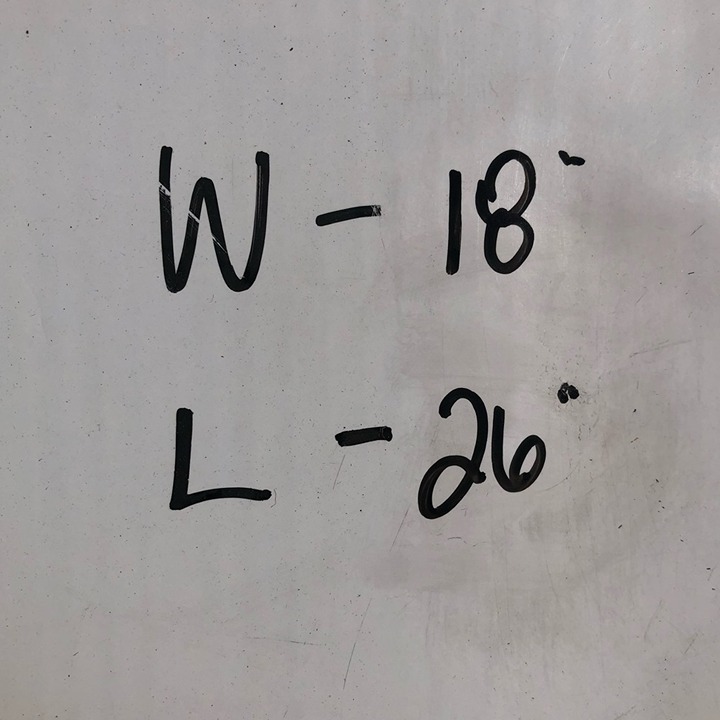 W - 18"
L - 26"